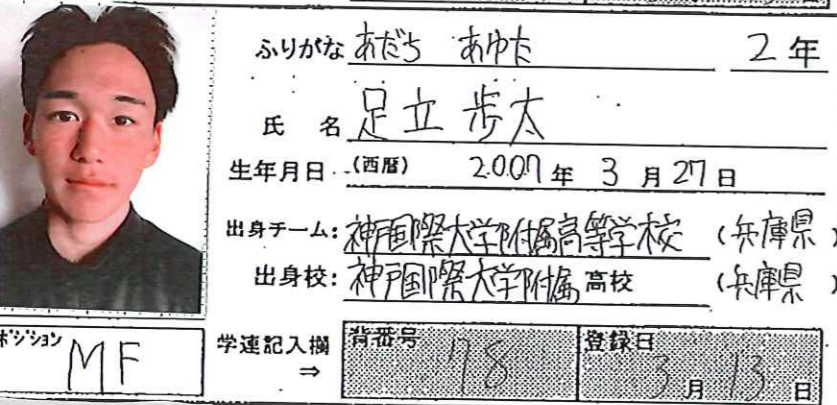 ふりがな あだち あゆた 2年
氏 名 足立 歩太
生年月日 (西暦) 2007年 3月27日
出身チーム: 神戸国際大学附属高等学校 (兵庫県)
出身校: 神戸国際大学附属 高校 (兵庫県)
ポジション MF 学連記入欄 ⇒ 背番号 78 登録日 3月13日